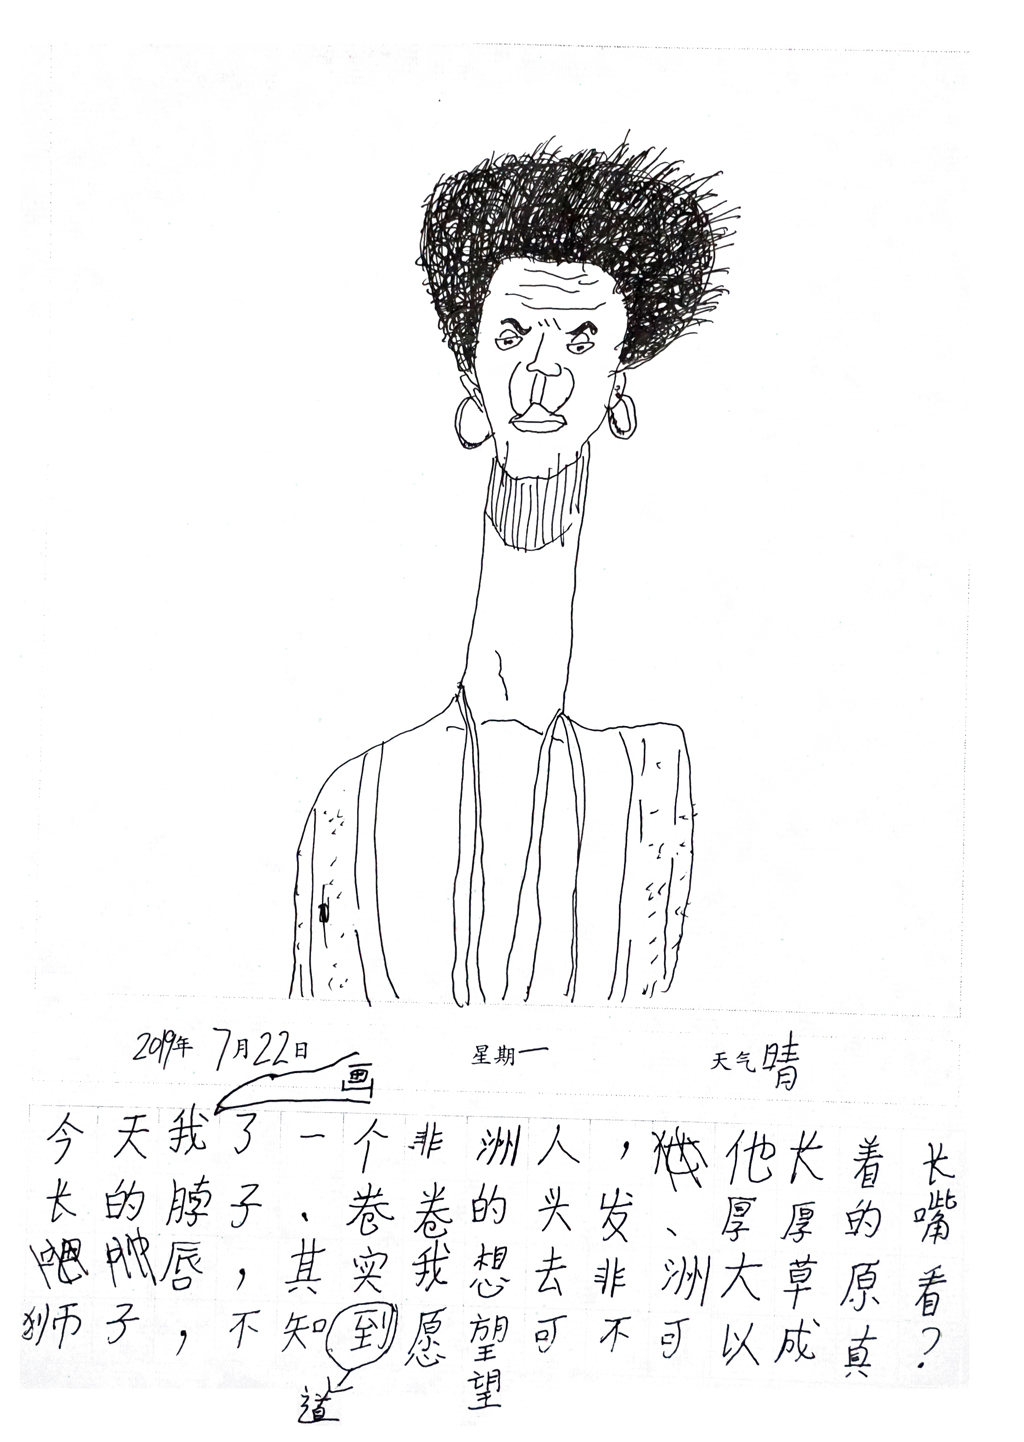 2019年 7月22日 星期一 天气晴
画
今天我了一个非洲人，他长着长
长的脖子、卷卷的头发、厚厚的嘴
唇，其实我想去非洲大草原看
狮子，不知到愿望可不可以成真？
道 望